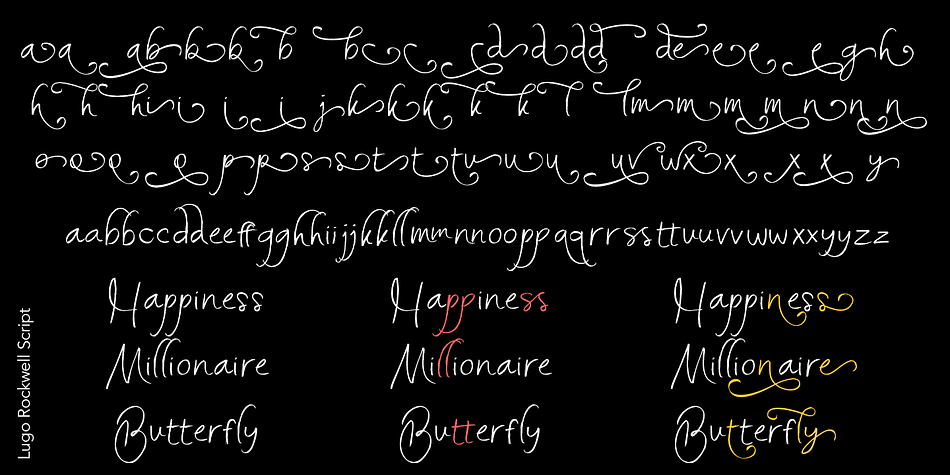 a a a b b b b b c c c d d d d d e e e e g h
h h h i i i i j k k k k k l l m m m m n n n
p p s s t t t u u u u v w x x x x y
aabbccddeeffgghhiijjkkllmmnnooppqqrrssttuuvvwwxxyyzz
Happiness Happiness Happiness
Millionaire Millionaire Millionaire
Butterfly Butterfly Butterfly
Lugo Rockwell Script